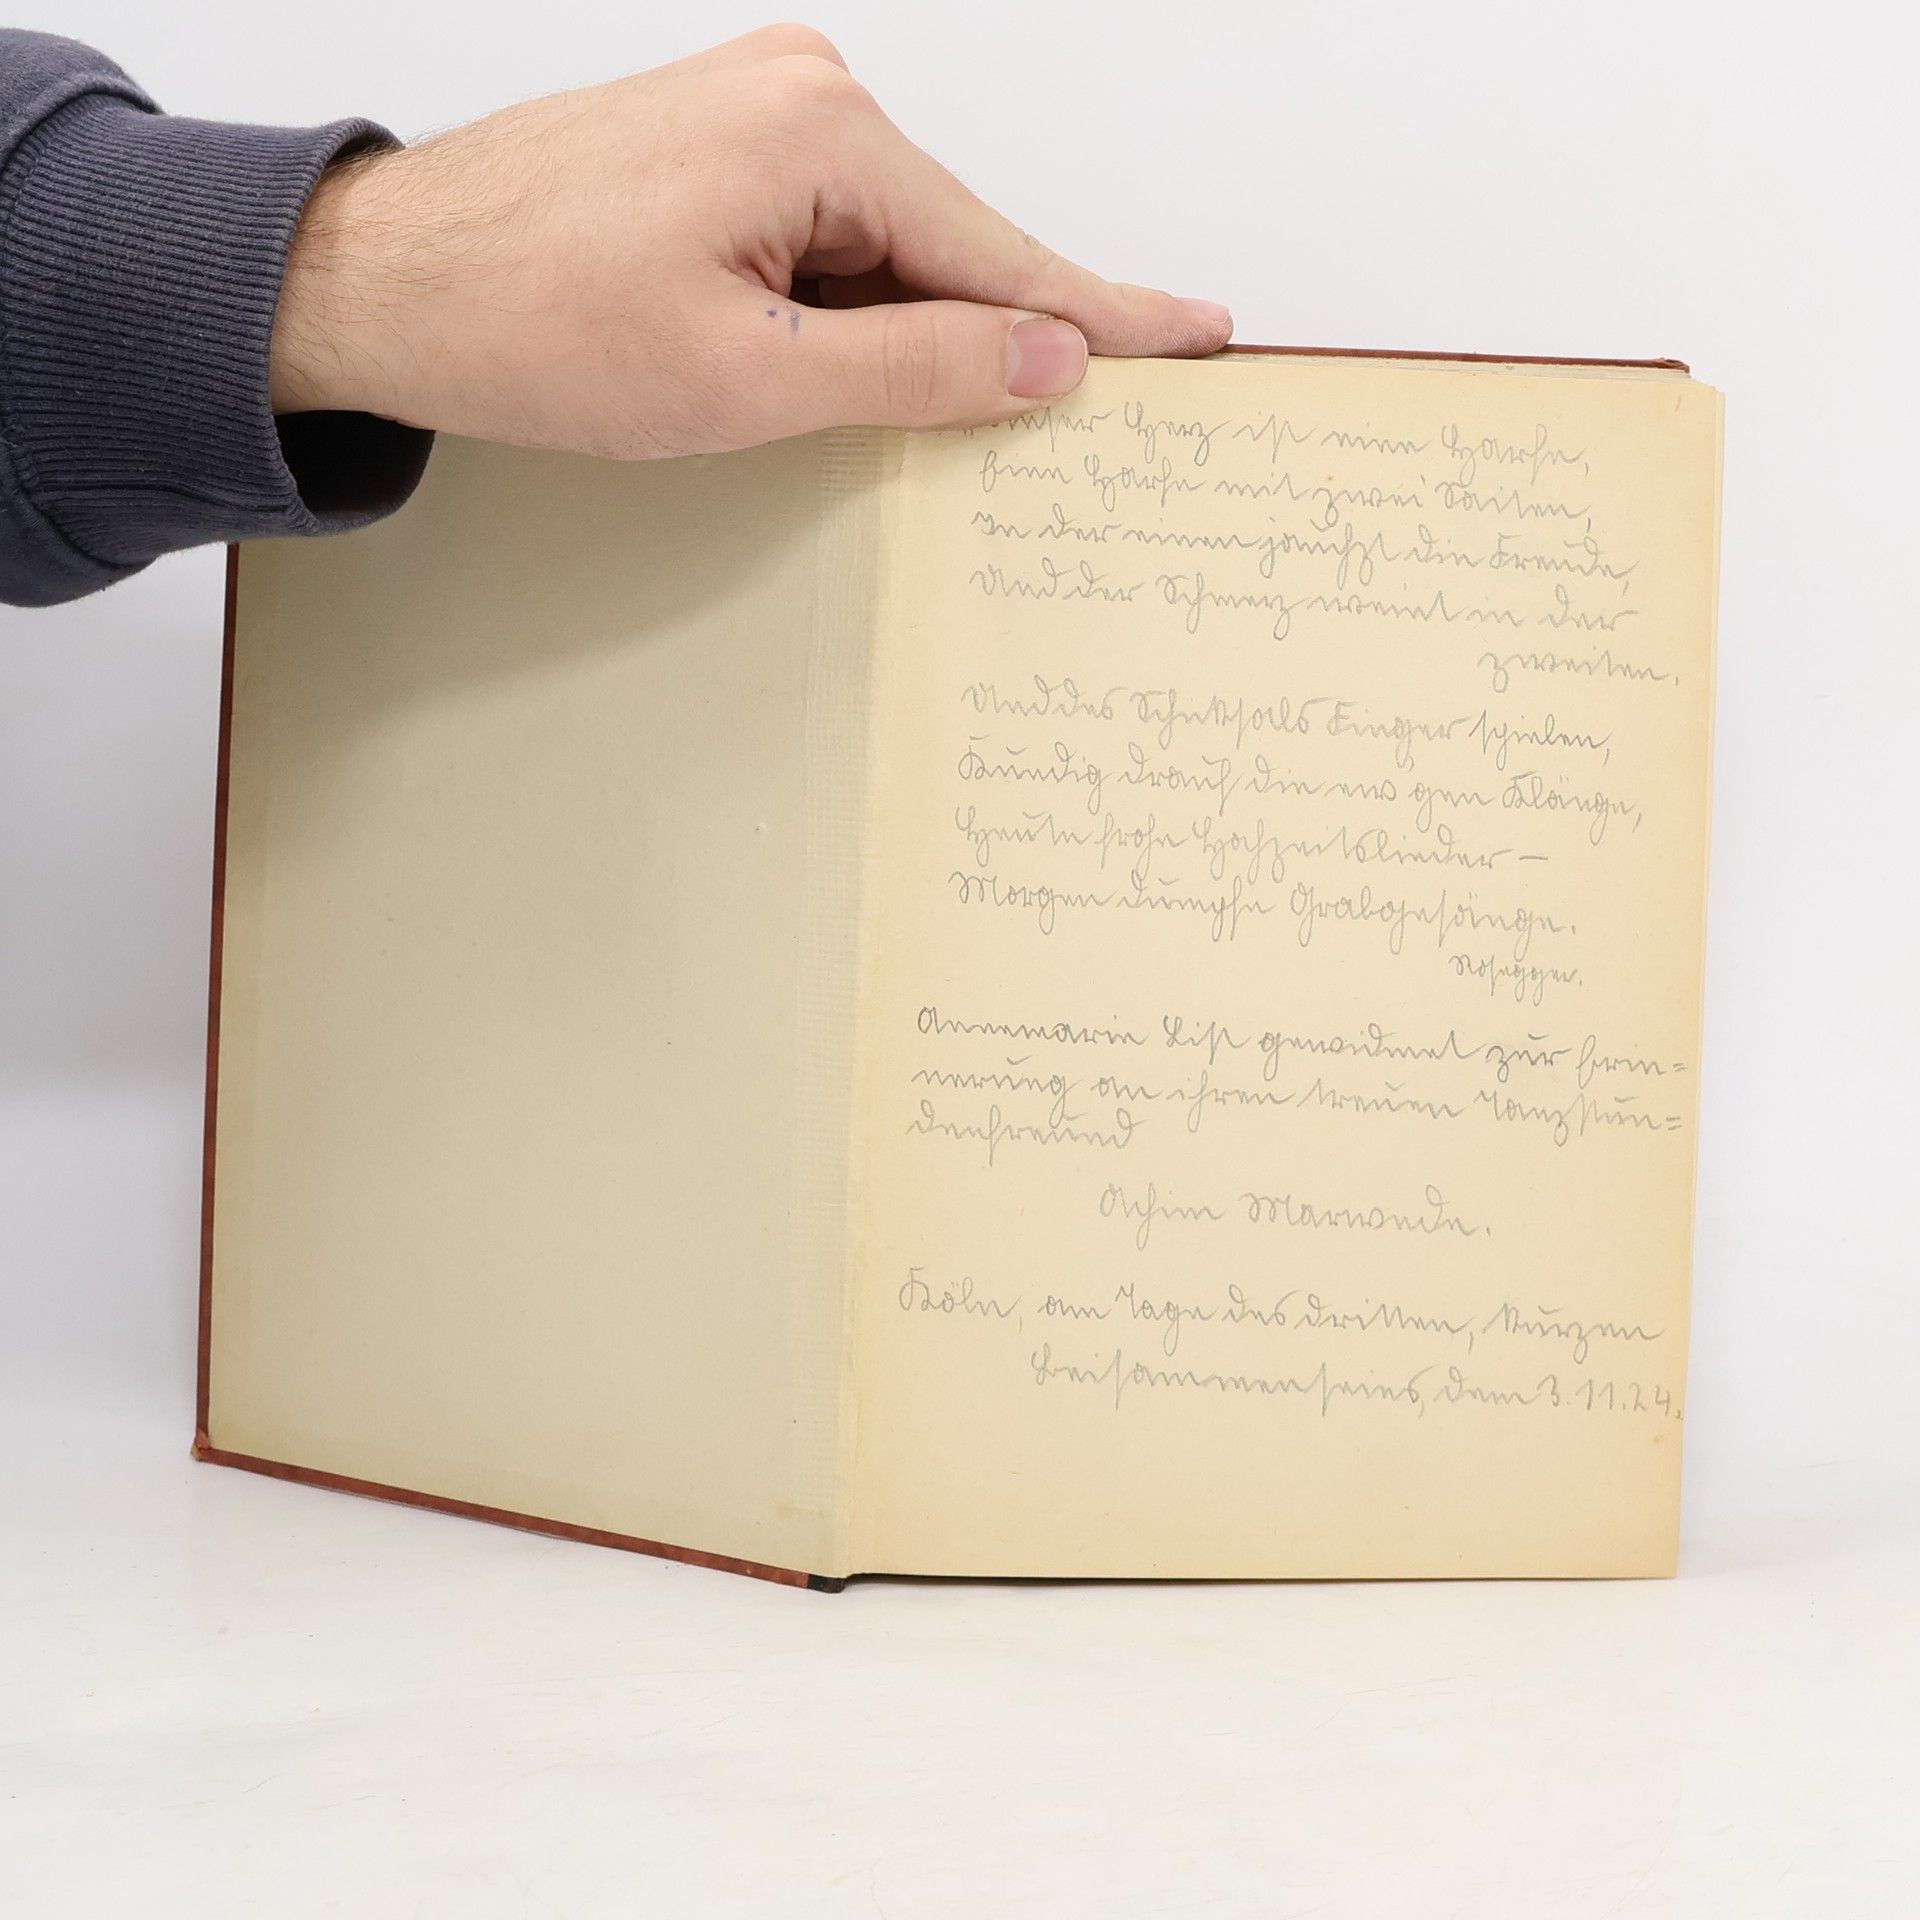 Unser Herz ist eine Harfe,
Eine Harfe mit zwei Saiten,
In der einen jauchzt die Freude,
Und der Schmerz weint in der
zweiten.
Und des Schicksals Finger spielen,
Kundig drauf die ew'gen Klänge,
Heute frohe Hochzeitslieder –
Morgen dumpfe Grabgesänge.
Rosegger.
Annemarie List gewidmet zur Erin=
nerung an ihren treuen Tanzstun=
denfreund
Achim Marwede.
Köln, am Tage des dritten, kurzen
Beisammenseins, dem 3.11.24.